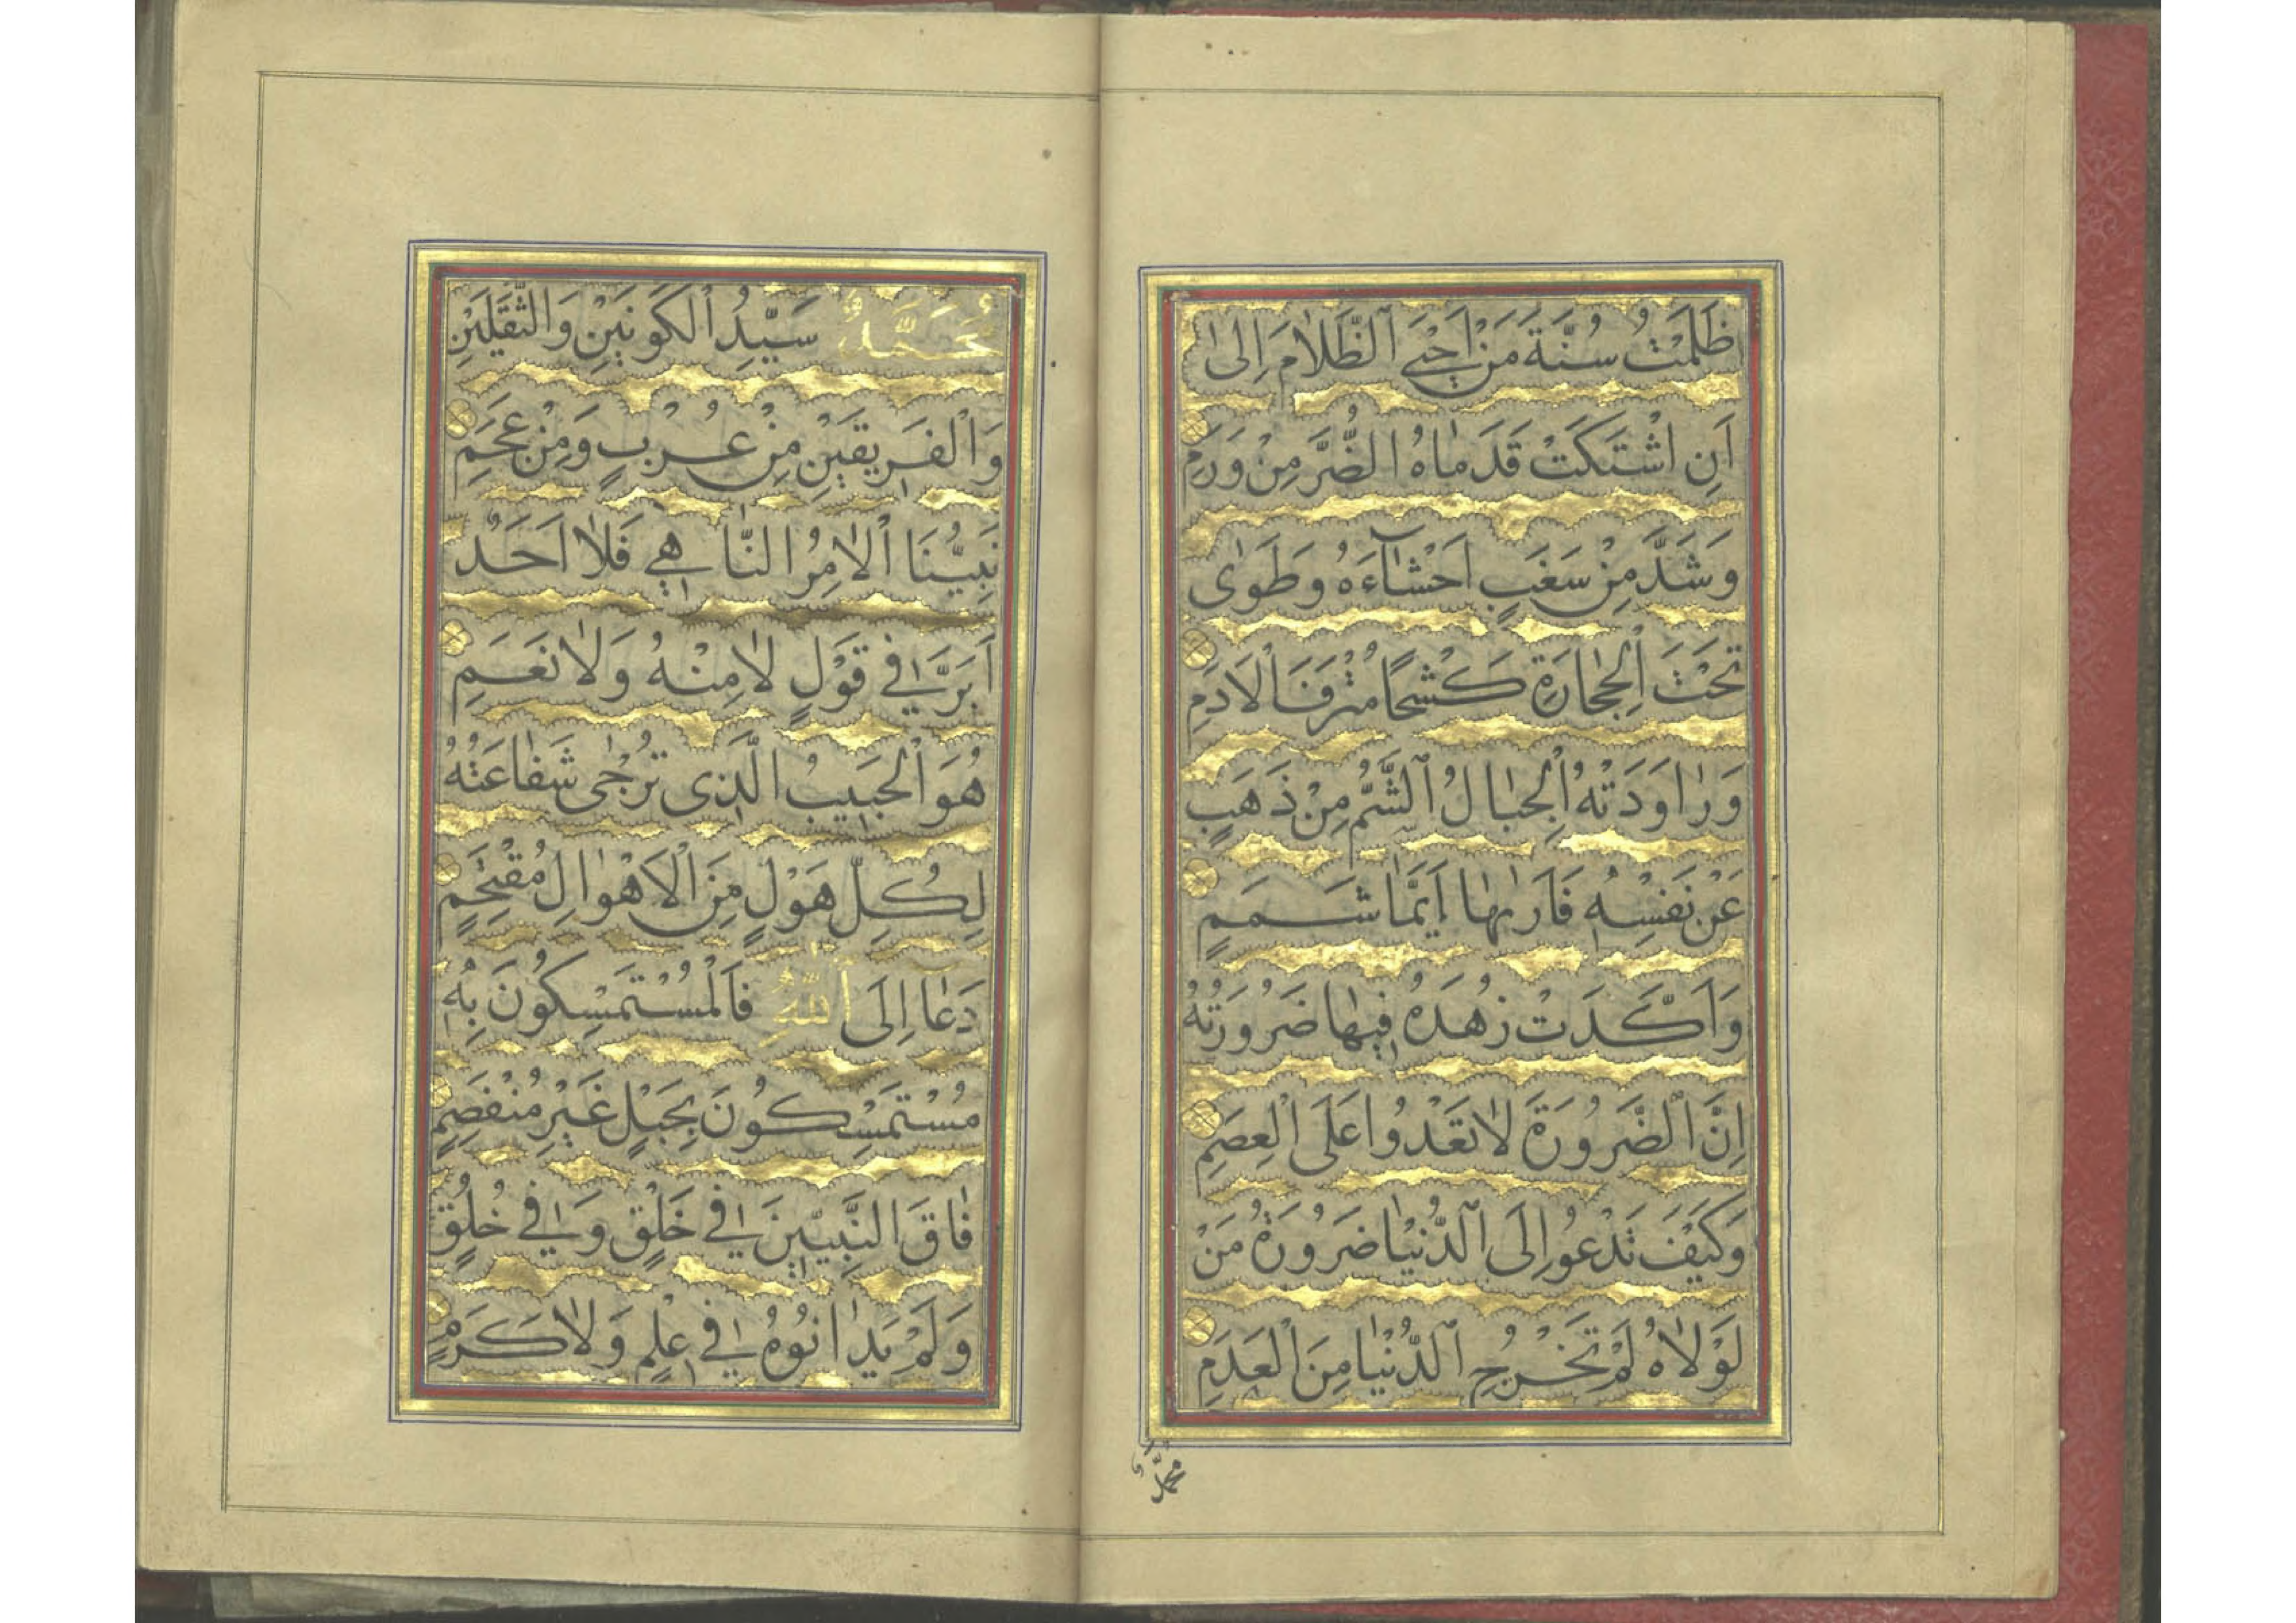 ظَلَمْتُ سُنَّةَ مَنْ اَحْيَى الظَّلَامَ اِلٰى
اَنِ اشْتَكَتْ قَدَمَاهُ الضُّرَّ مِنْ وَرَمِ
وَشَدَّ مِنْ سَغَبٍ اَحْشَآءَهُ وَطَوٰى
تَحْتَ الْحِجَارَةِ كَشْحًا مُتْرَفَ الْاَدَمِ
وَرَاوَدَتْهُ الْجِبَالُ الشُّمُّ مِنْ ذَهَبٍ
عَنْ نَفْسِهِ فَاَرٰىهَا اَيَّمَا شَمَمٍ
وَاَكَّدَتْ زُهْدَهُ فِيهَا ضَرُورَتُهُ
اِنَّ الضَّرُورَةَ لَا تَعْدُوا عَلَى الْعِصَمِ
وَكَيْفَ تَدْعُو اِلَى الدُّنْيَا ضَرُورَةُ مَنْ
لَوْلَاهُ لَمْ تَخْرُجِ الدُّنْيَا مِنَ الْعَدَمِ
محمد
مُحَمَّدٌ سَيِّدُ الْكَوْنَيْنِ وَالثَّقَلَيْنِ
وَالْفَرِيقَيْنِ مِنْ عُرْبٍ وَمِنْ عَجَمِ
نَبِيُّنَا الْاٰمِرُ النَّاهِي فَلَا اَحَدٌ
اَبَرَّ فِي قَوْلِ لَا مِنْهُ وَلَا نَعَمِ
هُوَ الْحَبِيبُ الَّذِى تُرْجٰى شَفَاعَتُهُ
لِكُلِّ هَوْلٍ مِنَ الْاَهْوَالِ مُقْتَحِمٍ
دَعَا اِلَى اللّٰهِ فَالْمُسْتَمْسِكُونَ بِهِ
مُسْتَمْسِكُونَ بِحَبْلٍ غَيْرِ مُنْفَصِمٍ
فَاقَ النَّبِيِّينَ فِي خَلْقٍ وَفِي خُلُقٍ
وَلَمْ يُدَانُوهُ فِي عِلْمٍ وَلَا كَرَمٍ